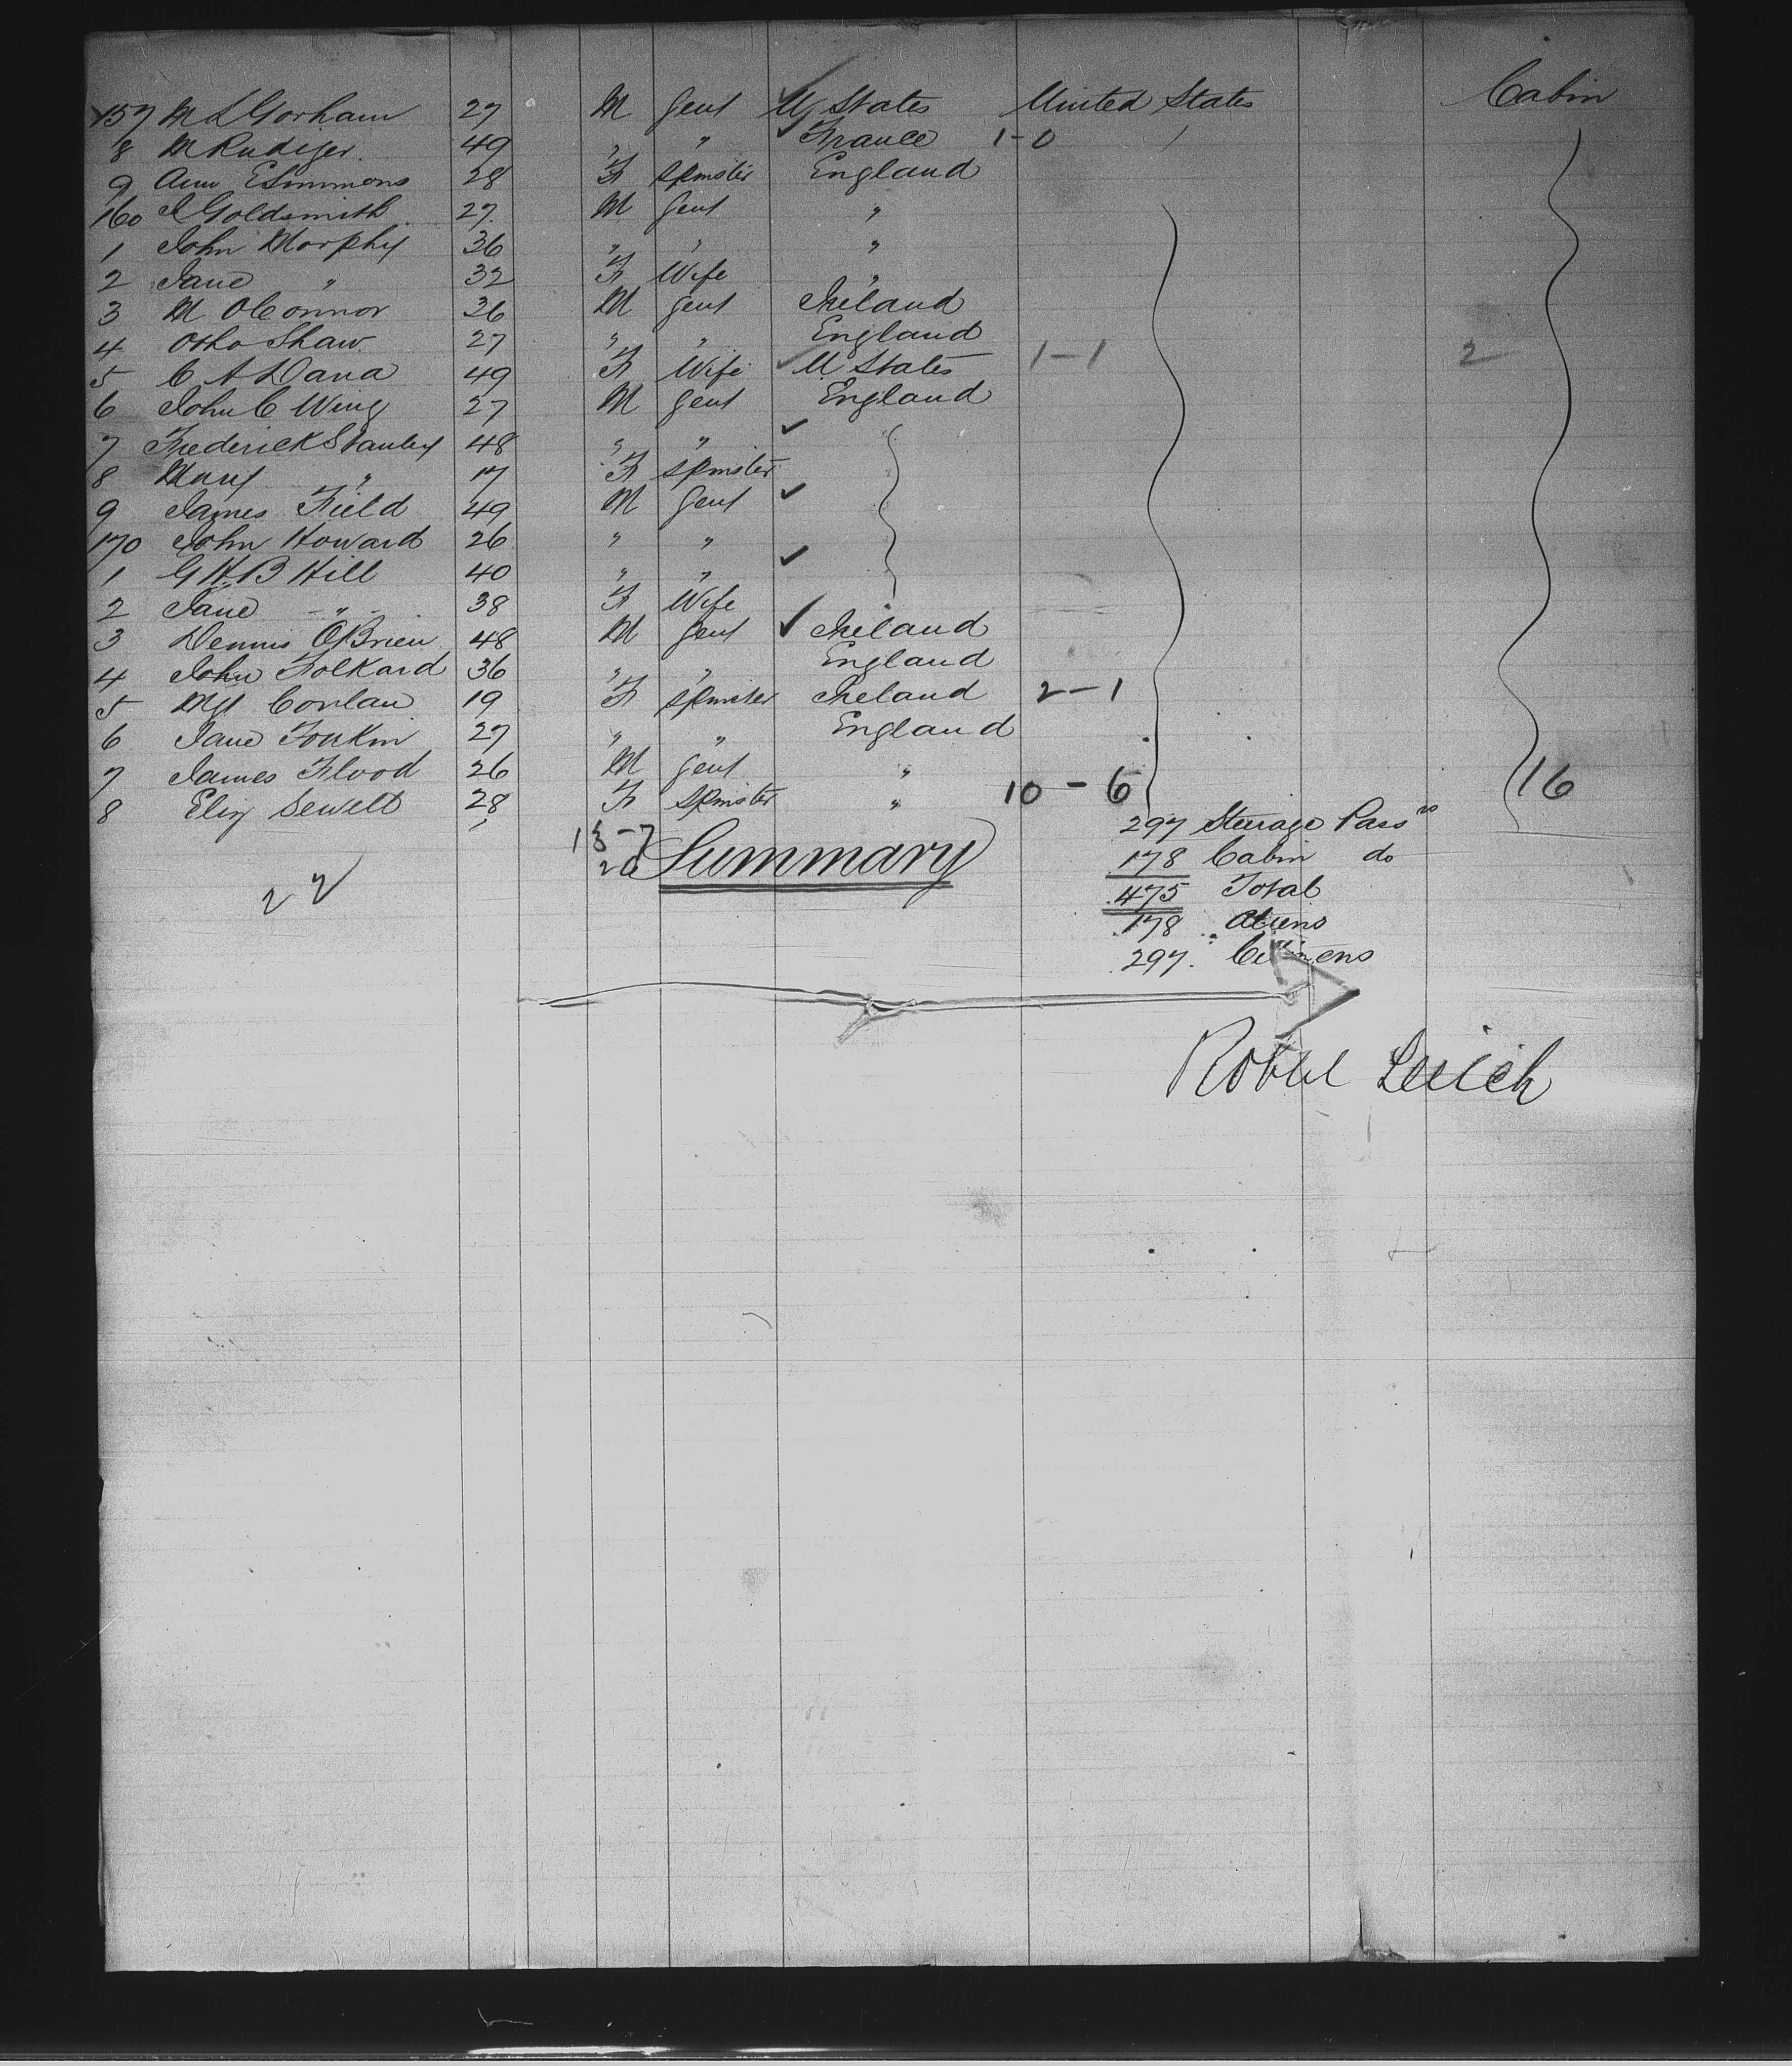 Cabin
157 M L Gorham 27 M Gent U States United States
8 M Rudiger 49 " " France 1-0
9 Ann E Simmons 28 F Spinster England
160 J Goldsmith 27 M Gent "
1 John Morphy 36 " " "
2 Jane " 32 F Wife "
3 M OConnor 36 M Gent Ireland
4 Otho Shaw 27 " " England
5 C A Dana 49 F Wife U States 1-1 2
6 John C Wing 27 M Gent England
7 Frederick Stanley 48 " "
8 Mary " 17 F Spinster
9 James Field 49 M Gent
170 John Howard 26 " "
1 G H B Hill 40 " "
2 Jane " 38 F Wife
3 Dennis OBrien 48 M Gent Ireland
4 John Folkard 36 " " England
5 Mgt Conlan 19 F Spinster Ireland 2-1
6 Jane Tonkin 27 " " England
7 James Flood 26 M Gent "
8 Eliz Sewell 28 F Spinster " 10-6 16
13-7
20
Summary
297 Steerage Pass rs
178 Cabin do
475 Total
178 Aliens
297 Citizens
22
Robert Leitch